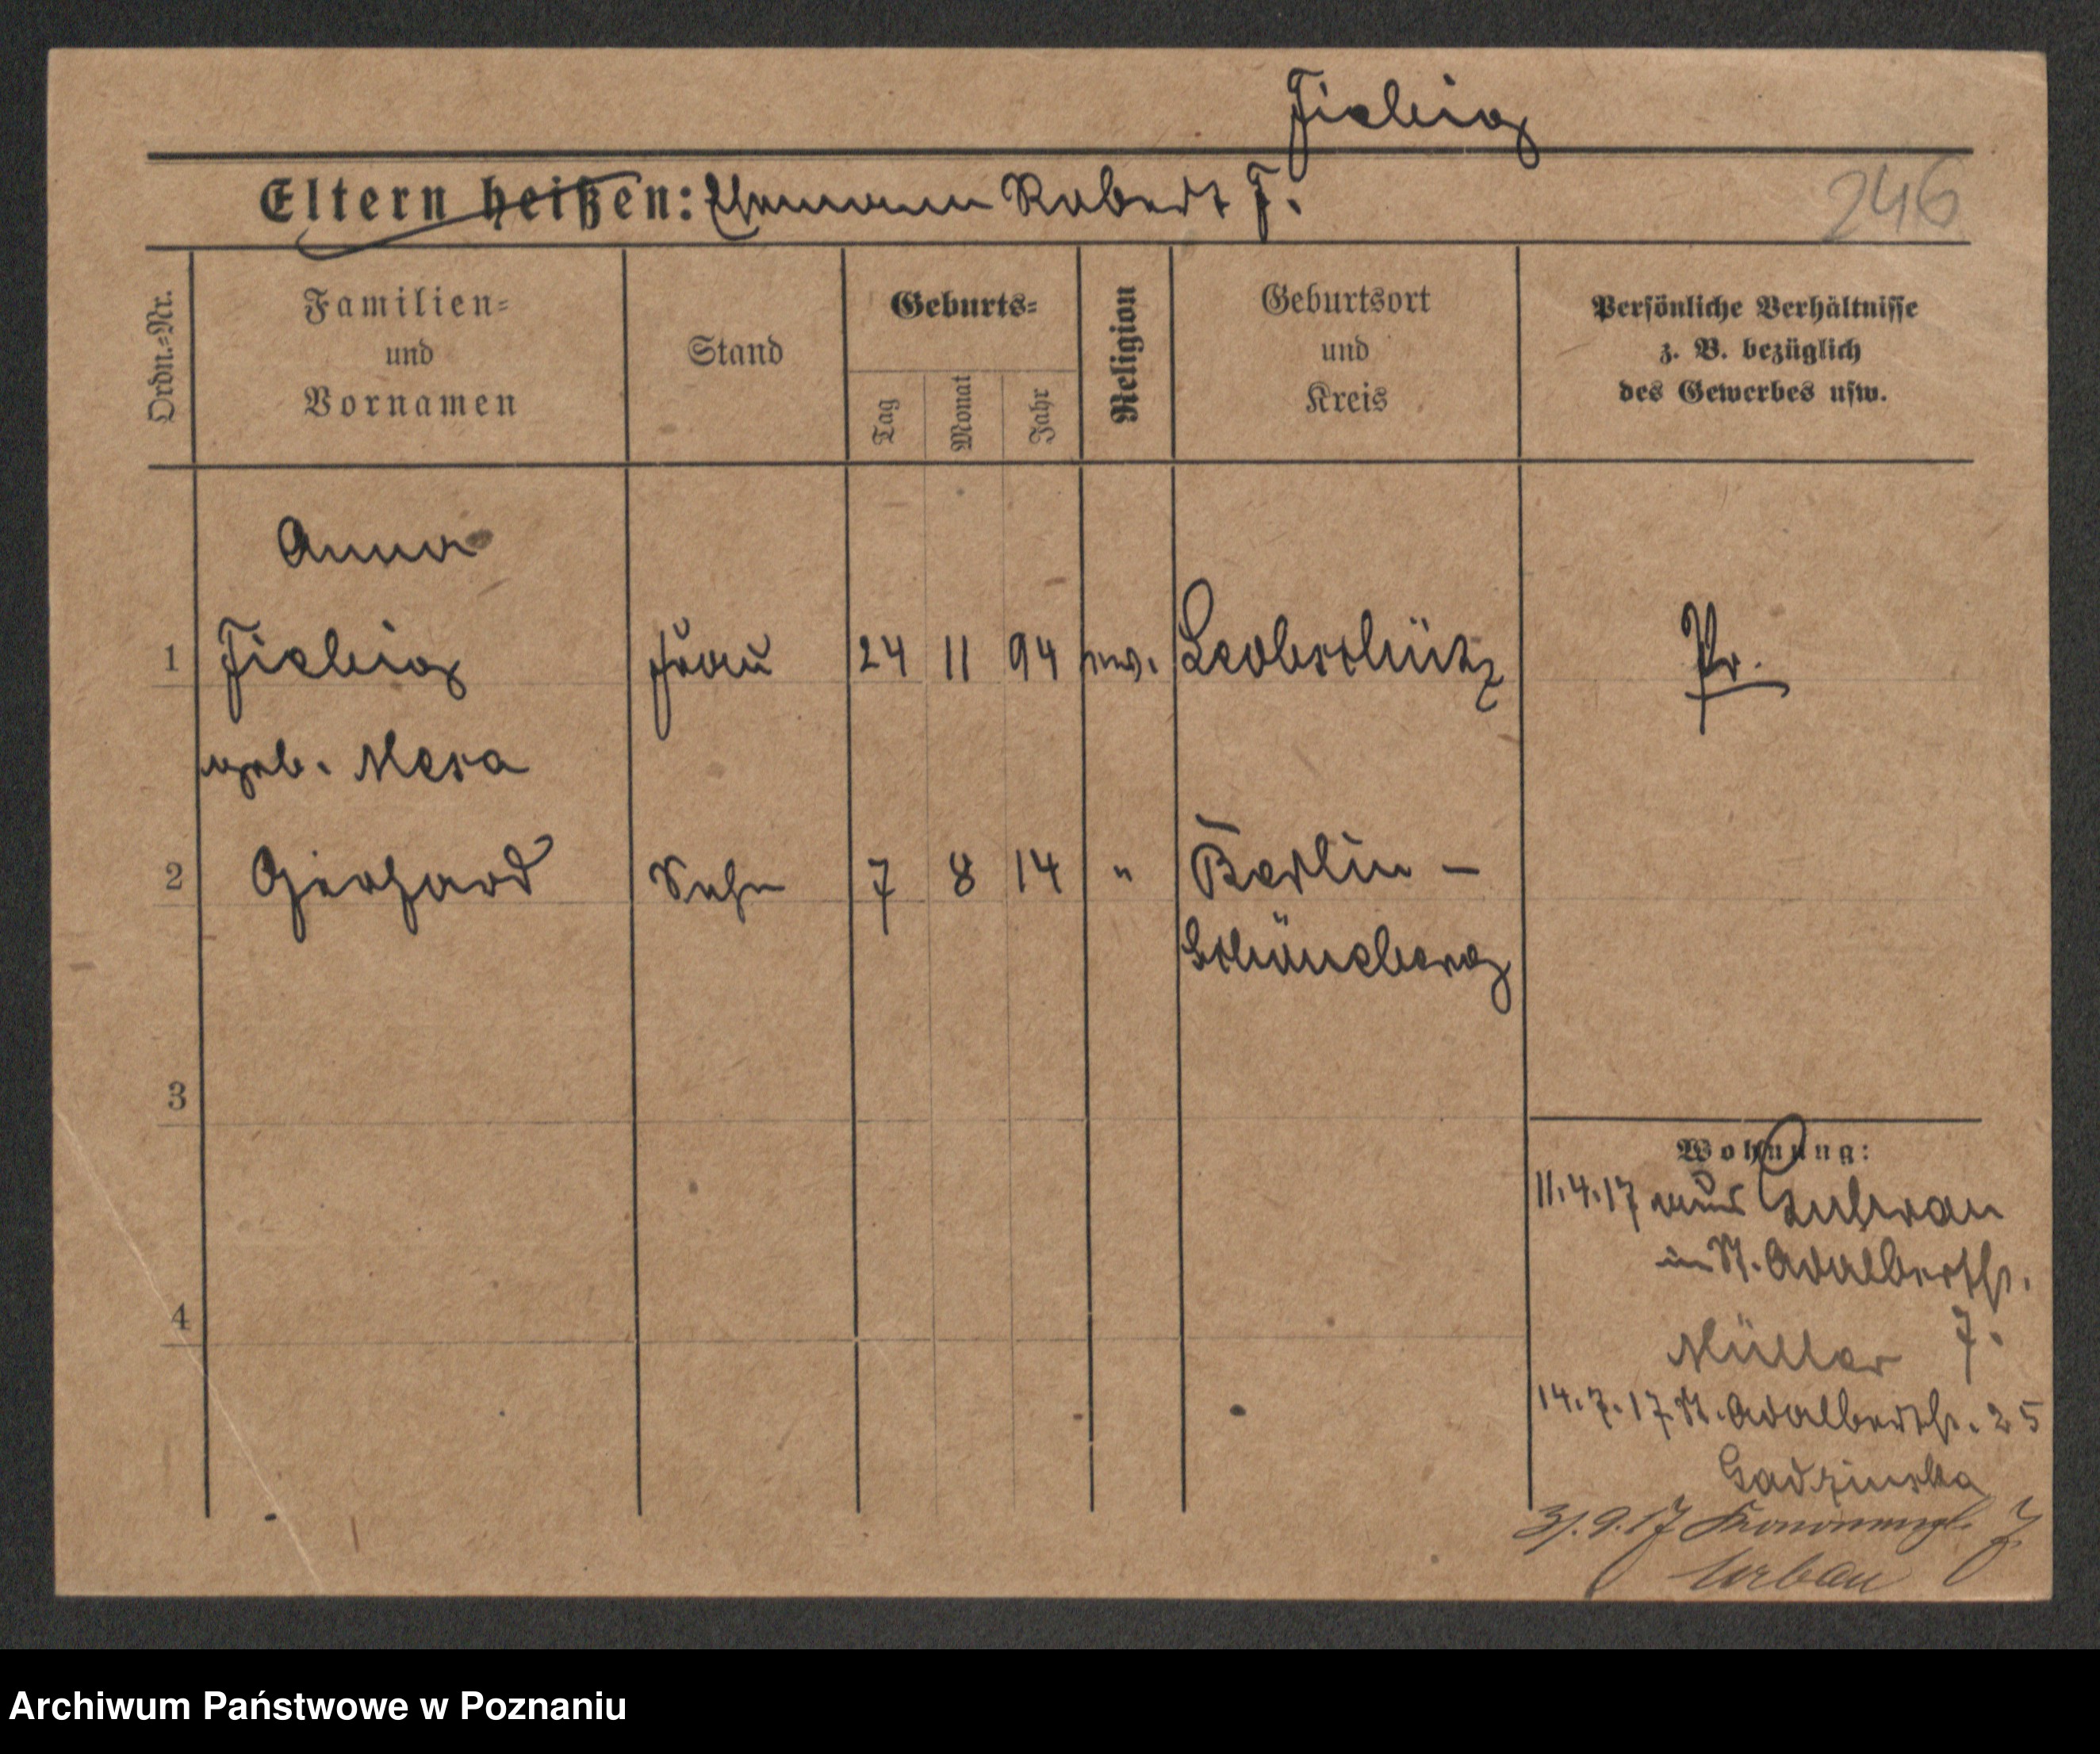 Fiebig
Eltern heißen: Ehemann Robert F.
246
Ordn.-Nr.
Familien-
und
Vornamen
Stand
Geburts-
Tag
Monat
Jahr
Religion
Geburtsort
und
Kreis
Persönliche Verhältnisse
z. B. bezüglich
des Gewerbes usw.
Anna
1 Fiebig Frau 24 11 94 Leobschütz Pr.
geb. Mesa
2 Gerhard Sohn 7 8 14 " Berlin -
Schöneberg
3
4
Wohnung:
11.4.17 aus Guhrau
in St. Adalbertstr.
Müller 7.
14.7.17 St. Adalbertstr. 25
Gadzinska
31.9.17 7
Urban
Archiwum Państwowe w Poznaniu